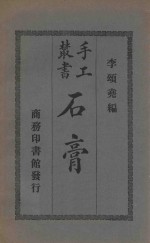 李頌堯編
手工
叢書
石膏
商務印書館發行